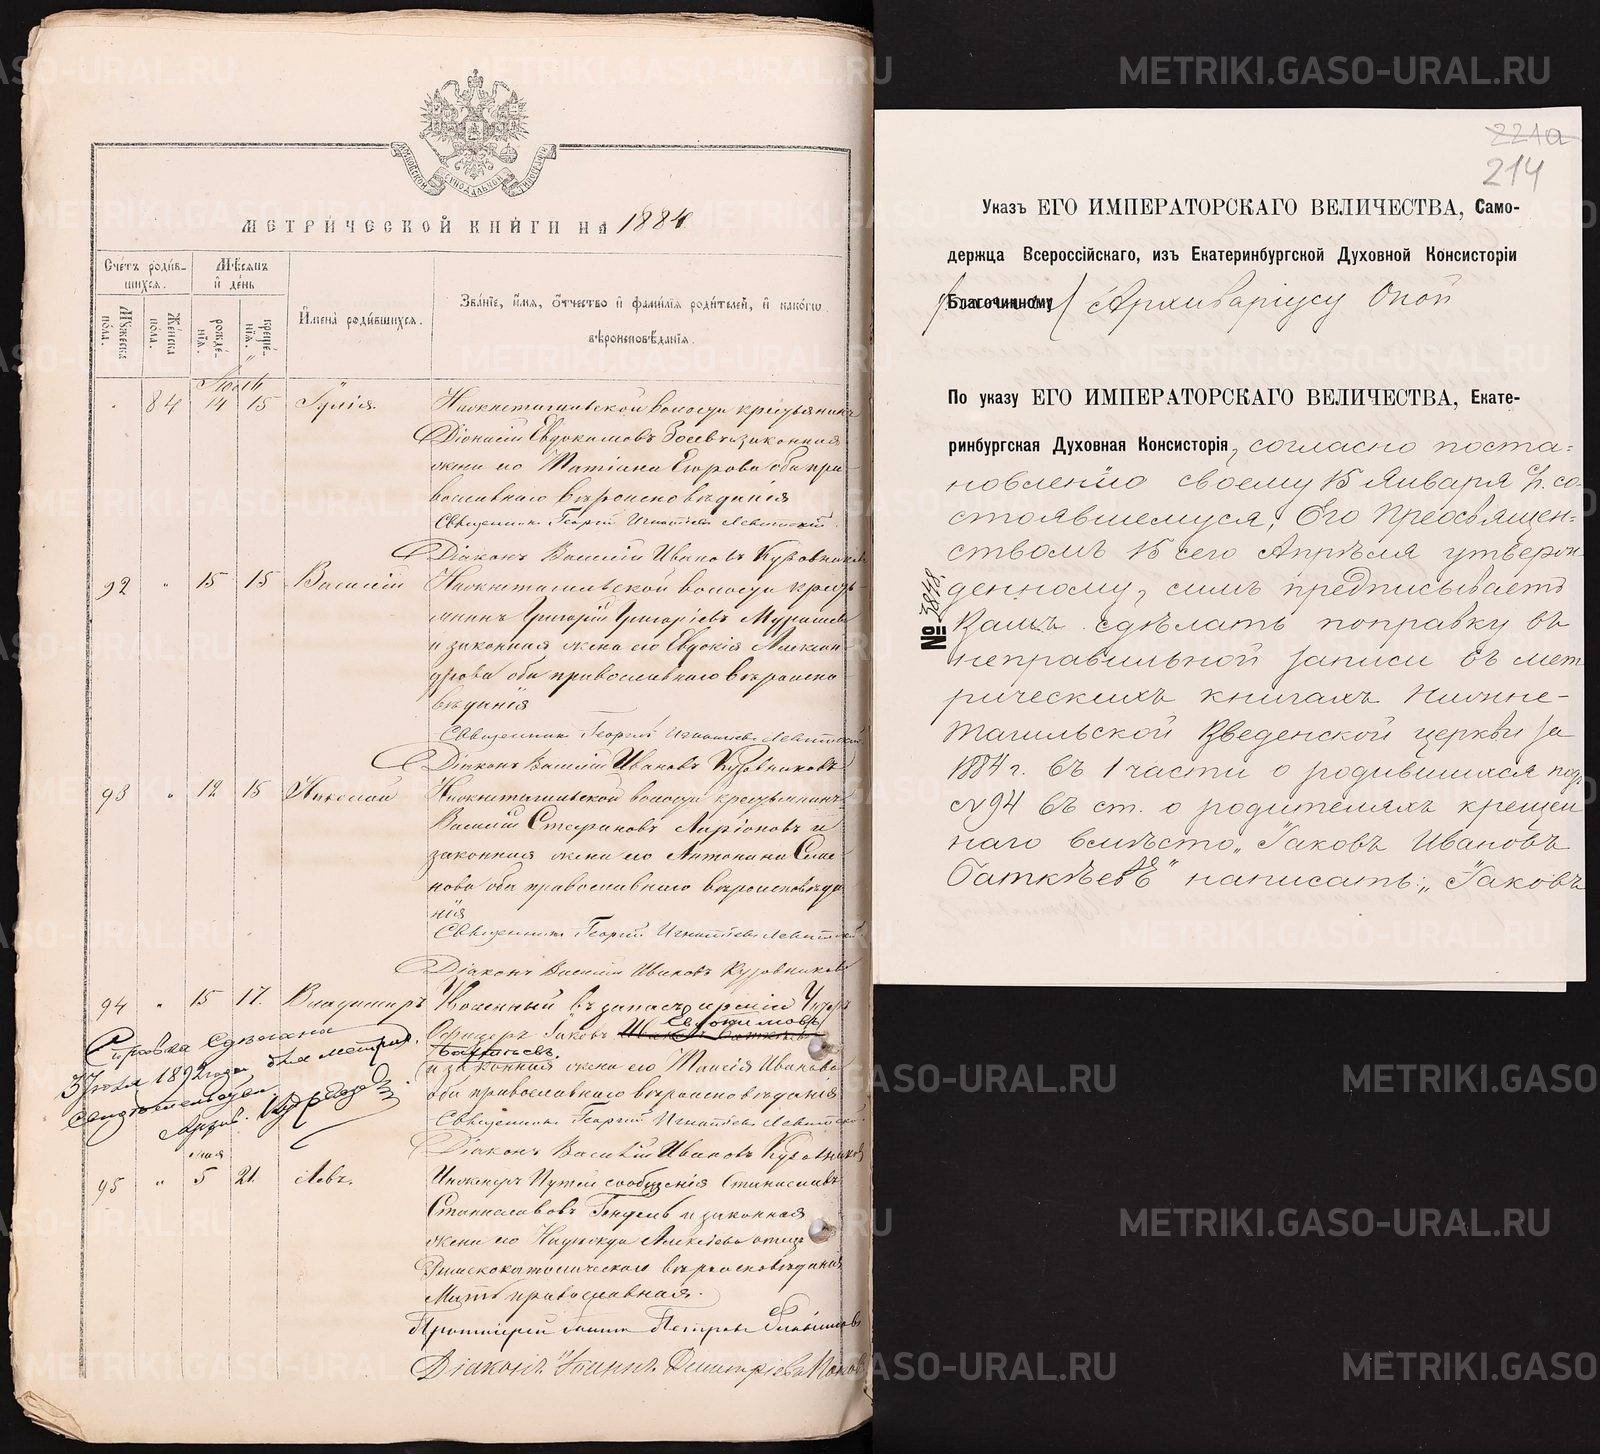 МОСКОВСКОЙ СѴНОДАЛЬНОЙ ТИПОГРАФІИ
МЕТРИЧЕСКОЙ КНИГИ НА 1884
Счетъ родившихся.
Мѣсяцъ и день
Имена родившихся.
Званіе, имя, отчество и фамилія родителей, и какого вѣроисповѣданія.
Мужеска пола.
Женска пола.
рожденія.
крещенія.
84 14 15 Іулія. Нижнетагильской волости крестьянинъ
Діонисій Евдокимовъ Зоевъ и законная
жена его Татіана Егорова оба пра-
вославнаго вѣроисповѣданія
Священникъ Георгій Игнатіевъ Левитскій
Діаконъ Василій Ивановъ Кузовниковъ
92 " 15 15 Василій Нижнетагильской волости кресть-
янинъ Григорій Григоріевъ Мурашевъ
и законная жена его Евдокія Алексан-
дрова оба православнаго вѣроиспо-
вѣданія
Священникъ Георгій Игнатіевъ Левитскій
Діаконъ Василій Ивановъ Кузовниковъ
93 " 12 15 Николай Нижнетагильской волости крестьянинъ
Василій Стефановъ Ларіоновъ и
законная жена его Антонина Семе-
нова оба православнаго вѣроисповѣда-
нія
Священникъ Георгій Игнатіевъ Левитскій
Діаконъ Василій Ивановъ Кузовниковъ
94 " 15 17 Владимиръ Уволенный въ запасъ арміи Унтеръ
Офицеръ Іаковъ Евдокимовъ
Баткѣевъ.
и законная жена его Таисія Иванова
оба православнаго вѣроисповѣданія
Священникъ Георгій Игнатіевъ Левитскій
Діаконъ Василій Ивановъ Кузовниковъ
Справка сдѣлана
1892 года для метрич.
свидѣтельства
Архив.
мая
95 " 5 21 Левъ. Инженеръ Путей сообщенія Станиславъ
Станиславовъ и законная
жена его Надежда Алексѣева отецъ
Римскокатолическаго вѣроисповѣданія
Мать православная.
Протоіерей Іоаннъ Петровъ
Діаконъ Іоаннъ Димитріевъ
221а
214
Указъ ЕГО ИМПЕРАТОРСКАГО ВЕЛИЧЕСТВА, Само-
держца Всероссійскаго, изъ Екатеринбургской Духовной Консисторіи
Благочинному Архиваріусу Оной
По указу ЕГО ИМПЕРАТОРСКАГО ВЕЛИЧЕСТВА, Екате-
ринбургская Духовная Консисторія, согласно поста-
новленію своему 15 Января с. г. со-
стоявшемуся, Его Преосвящен-
ствомъ 15 сего Апрѣля утверж-
денному, симъ предписываетъ
Вамъ сдѣлать поправку въ
неправильной записи въ мет-
рическихъ книгахъ Нижне-
тагильской Введенской церкви за
1884 г. въ 1 части о родившихся подъ
№ 94 въ ст. о родителяхъ крещен-
наго вмѣсто „Іаковъ Ивановъ
Баткѣевъ" написать: „Іаковъ
№ 3848.
METRIKI.GASO-URAL.RU